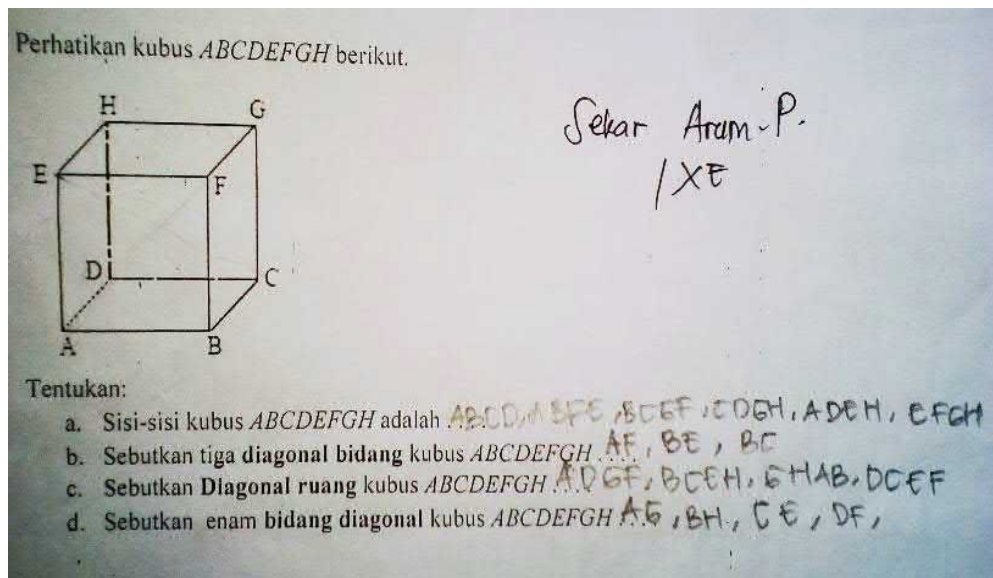 Perhatikan kubus ABCDEFGH berikut.
Sekar Arum.P.
IXE
H
G
E
F
D
C
A
B
Tentukan:
a. Sisi-sisi kubus ABCDEFGH adalah ABCD, ABFE, BCGF, CDGH, ADEH, EFGH
b. Sebutkan tiga diagonal bidang kubus ABCDEFGH .... AF, BE,
c. Sebutkan Diagonal ruang kubus ABCDEFGH .... ADGF, BCEH, GHAB, DCEF
d. Sebutkan enam bidang diagonal kubus ABCDEFGH AG, BH, CE, DF,